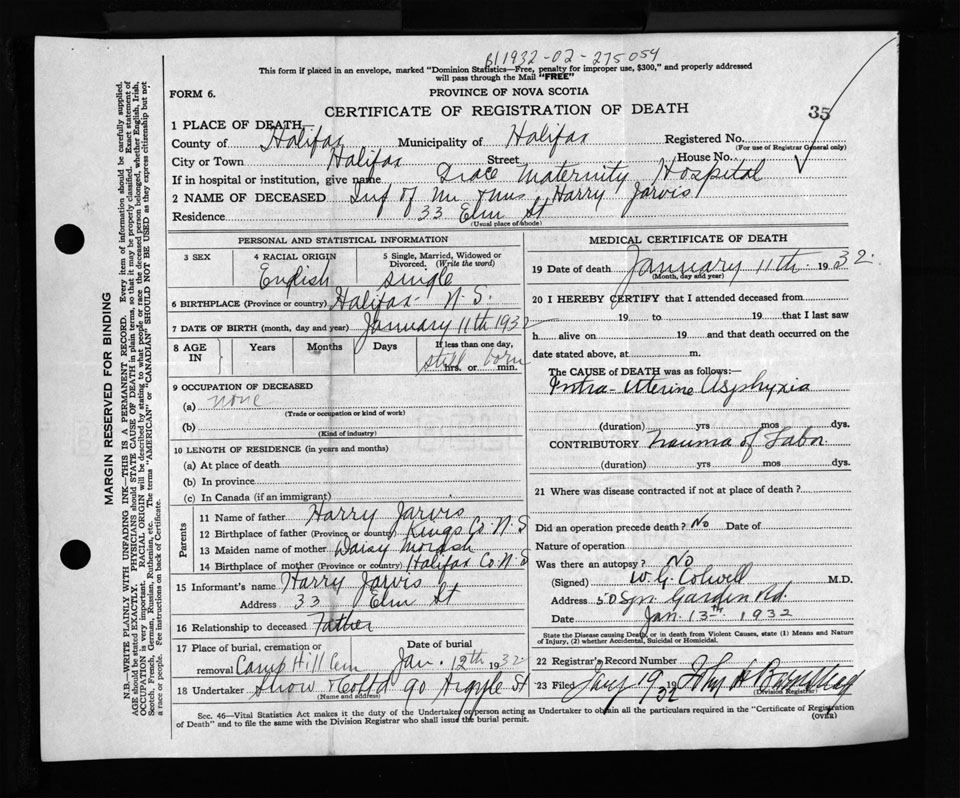 B1932-02-275054
This form if placed in an envelope, marked "Dominion Statistics—Free, penalty for improper use, $300," and properly addressed
will pass through the Mail "FREE"
FORM 6.
PROVINCE OF NOVA SCOTIA
CERTIFICATE OF REGISTRATION OF DEATH
35
1 PLACE OF DEATH
County of Halifax Municipality of Halifax Registered No.
(For use of Registrar General only)
City or Town Halifax Street House No.
If in hospital or institution, give name Grace Maternity Hospital
2 NAME OF DECEASED Inf of Mr & Mrs Harry Jarvis
Residence 33 Elm St
(Usual place of abode)
PERSONAL AND STATISTICAL INFORMATION
3 SEX
4 RACIAL ORIGIN English
5 Single, Married, Widowed or Divorced. (Write the word) single
6 BIRTHPLACE (Province or country) Halifax - N.S.
7 DATE OF BIRTH (month, day and year) January 11th 1932
8 AGE IN Years Months Days If less than one day, hrs. or min. still born
9 OCCUPATION OF DECEASED
(a) none
(Trade or occupation or kind of work)
(b)
(Kind of industry)
10 LENGTH OF RESIDENCE (in years and months)
(a) At place of death
(b) In province
(c) In Canada (if an immigrant)
Parents
11 Name of father Harry Jarvis
12 Birthplace of father (Province or country) Kings Co N.S
13 Maiden name of mother Daisy Morash
14 Birthplace of mother (Province or country) Halifax Co N.S
15 Informant's name Harry Jarvis
Address 33 Elm St
16 Relationship to deceased Father
17 Place of burial, cremation or removal Camp Hill Cem
Date of burial Jan. 12th 1932
18 Undertaker Snow & Co Ltd 90 Argyle St
(Name and address)
MEDICAL CERTIFICATE OF DEATH
19 Date of death January 11th 1932.
(Month, day and year)
20 I HEREBY CERTIFY that I attended deceased from
19 to 19 that I last saw
h alive on 19 and that death occurred on the
date stated above, at m.
The CAUSE of DEATH was as follows:—
Intra-Uterine Asphyxia
(duration) yrs mos dys.
CONTRIBUTORY Trauma of Labor
(duration) yrs mos dys.
21 Where was disease contracted if not at place of death?
Did an operation precede death? No Date of
Nature of operation
Was there an autopsy? No
(Signed) W. G. Colwell M.D.
Address 50 Spr. Garden Rd.
Date Jan. 13th 1932
State the Disease causing Death, or in death from Violent Causes, state (1) Means and Nature of Injury, (2) whether Accidental, Suicidal or Homicidal.
22 Registrar's Record Number
23 Filed Jany 19 32
Division Registrar
Sec. 46—Vital Statistics Act makes it the duty of the Undertaker or person acting as Undertaker to obtain all the particulars required in the "Certificate of Registration
of Death" and to file the same with the Division Registrar who shall issue the burial permit.
(OVER)
MARGIN RESERVED FOR BINDING
N.B.—WRITE PLAINLY WITH UNFADING INK—THIS IS A PERMANENT RECORD. Every item of information should be carefully supplied.
AGE should be stated EXACTLY. PHYSICIANS should STATE CAUSE OF DEATH in plain terms, so that it may be properly classified. Exact statement of
OCCUPATION is very important. RACIAL ORIGIN will be described by stating to what people or race the deceased person belonged, whether English, Irish,
Scotch, French, German, Russian, Ruthenian, etc. The terms "AMERICAN" or "CANADIAN" SHOULD NOT BE USED as they express citizenship but not
a race or people. See instructions on back of Certificate.